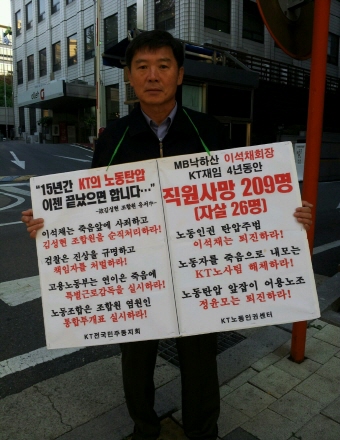 “15년간 KT의 노동탄압
이젠 끝났으면 합니다...”
-故김성현 조합원 유서中-
이석채는 죽음앞에 사죄하고
김성현 조합원을 순직처리하라!
검찰은 진상을 규명하고
책임자를 처벌하라!
고용노동부는 연이은 죽음에
특별근로감독을 실시하라!
노동조합은 조합원 염원인
통합투개표 실시하라!
KT전국민주동지회
MB낙하산 이석채회장
KT재임 4년동안
직원사망 209명
(자살 26명)
노동인권 탄압주범
이석채는 퇴진하라!
노동자를 죽음으로 내모는
KT노사팀 해체하라!
노동탄압 앞잡이 어용노조
정윤모는 퇴진하라!
KT노동인권센터